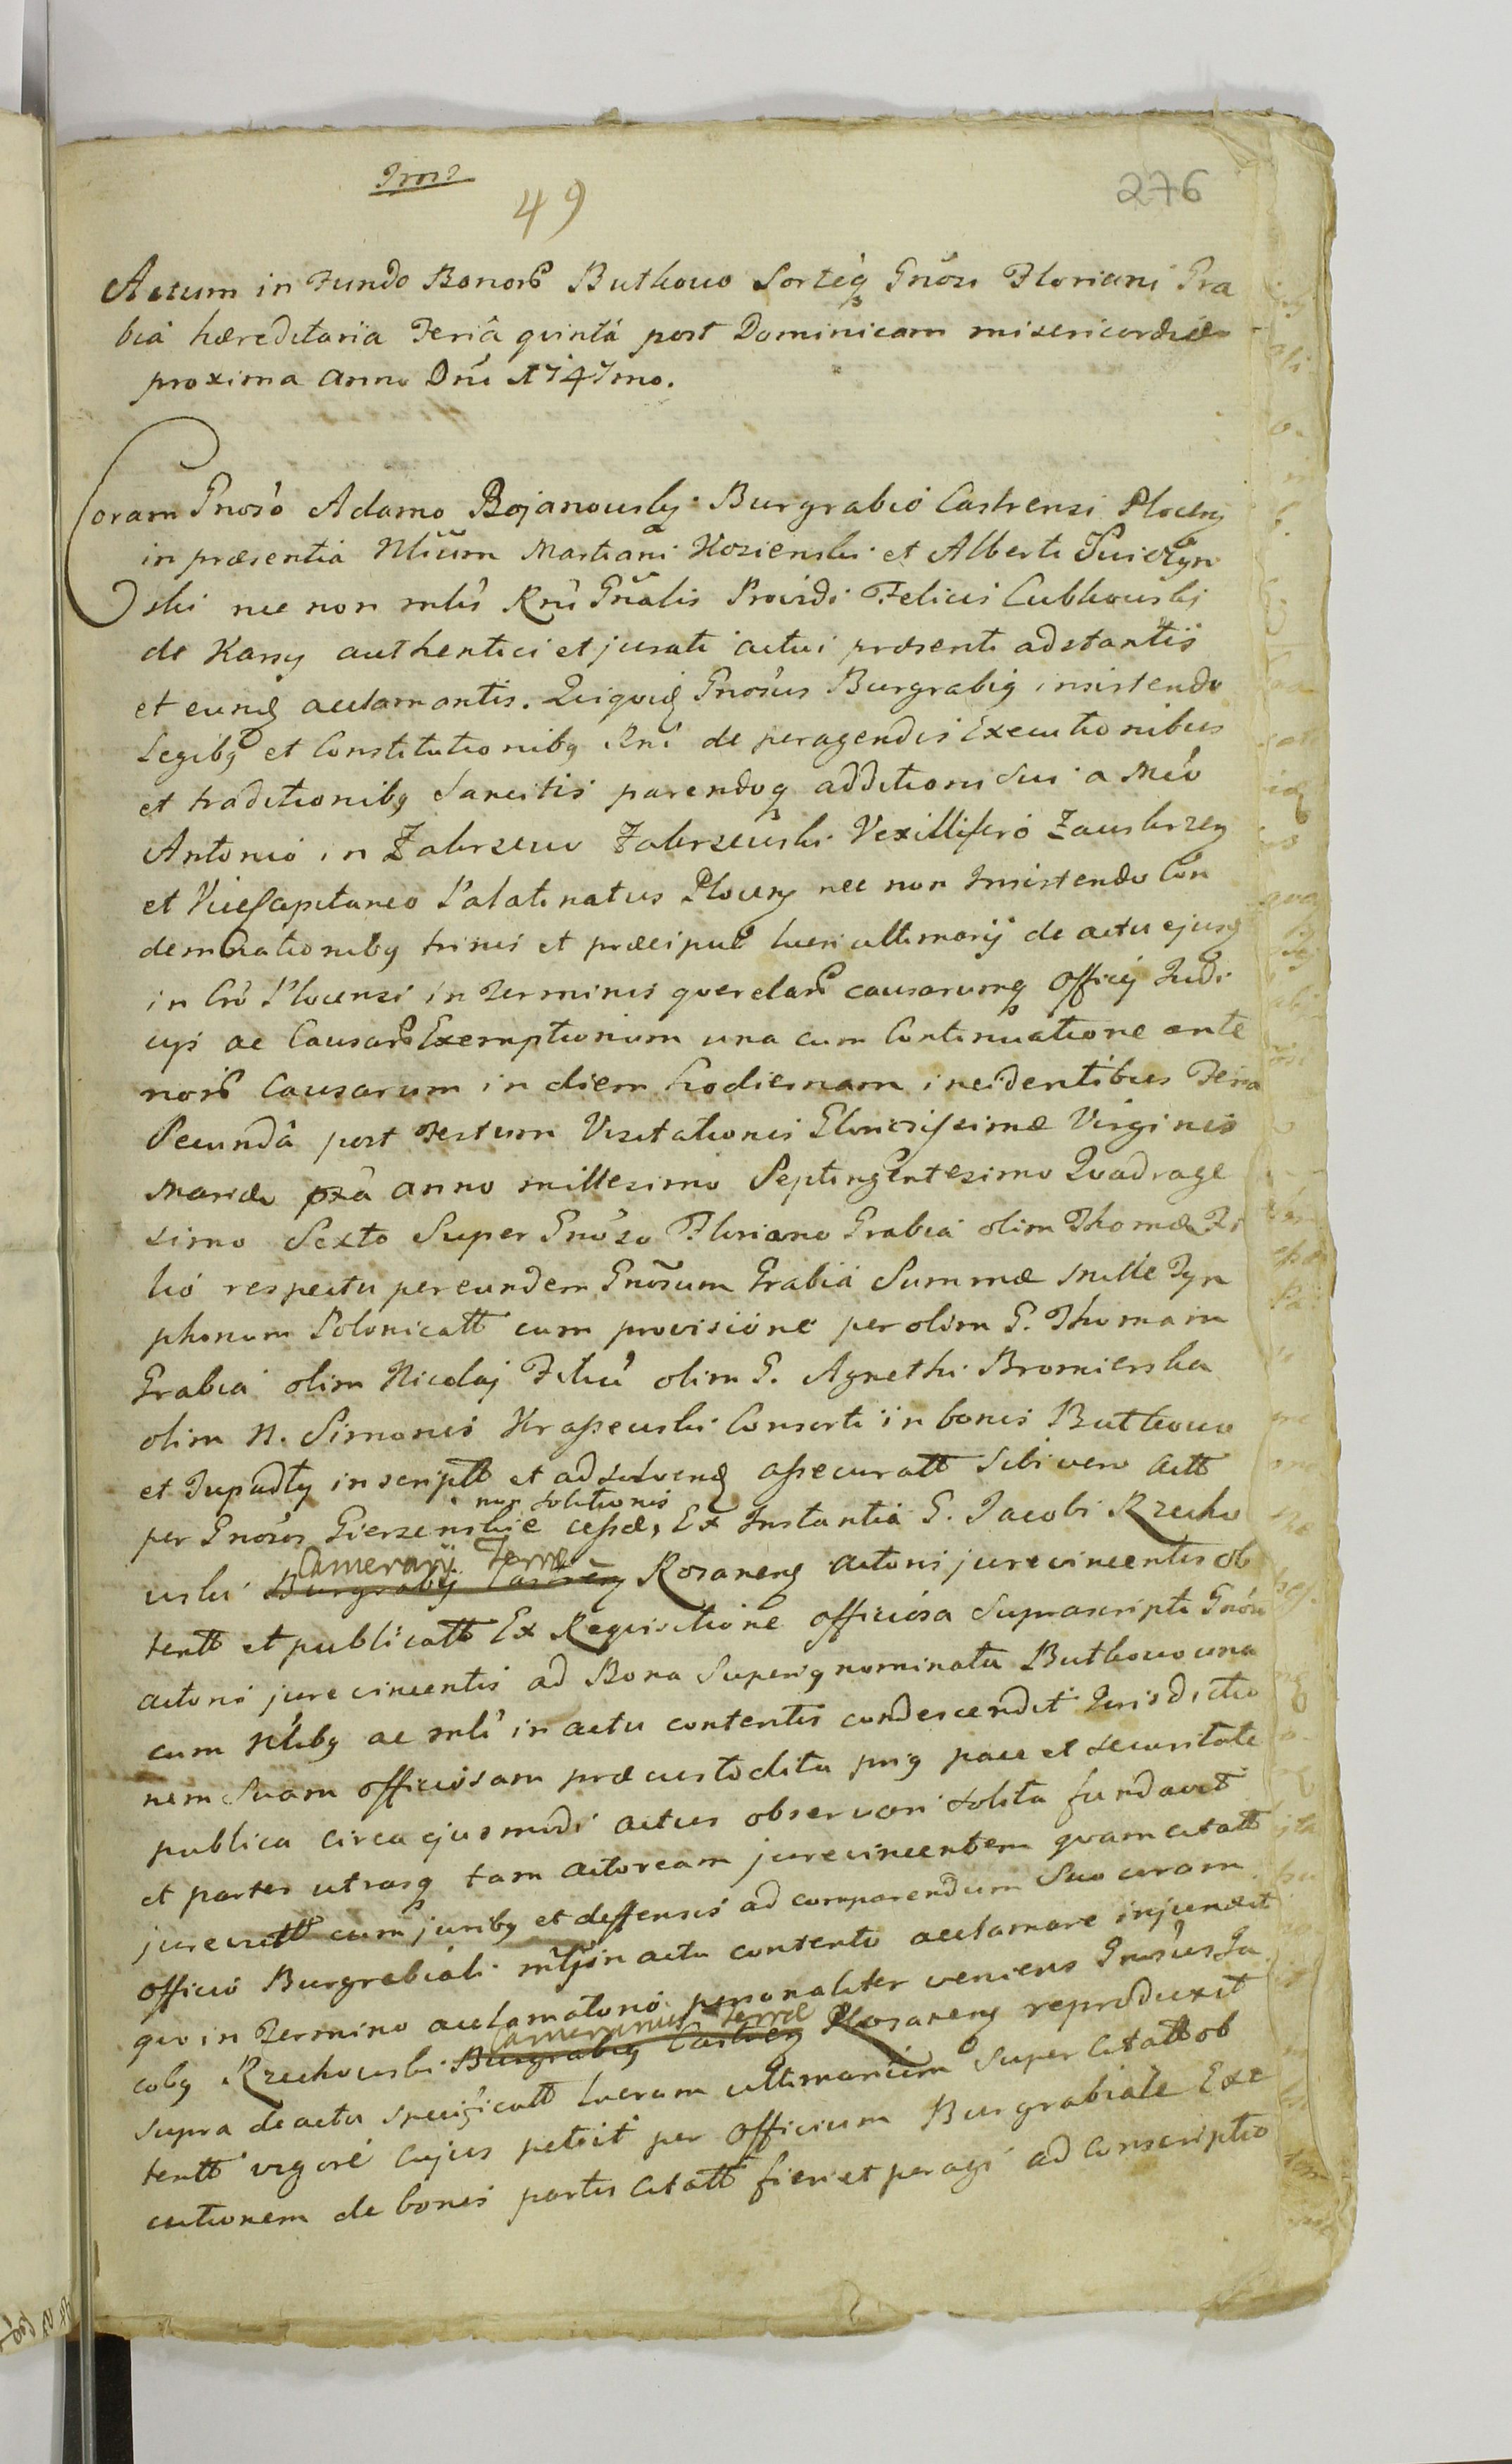 49
276
Actum in Fundo Bonorũ Buthowo Sorteq́ Gnosi Floriani Gra
bia hæreditaria Feriâ quintâ post Dominicam misericordiæ
proxima anno Dni 1747mo.
Coram Gnoso Adamo Bojanowsky Burgrabio Castrensi Plocen
in præsentia Nlium Martiani Kosienski et Alberti Swiezyn
ski nec non mlis Rni Gnalis Providi Felicis Lubkowski
de Karsy authentici et jurati actui præsenti adstantis
et eund acclamantis. Quiquid Gnosus Burgrabiq insistendo
Legibq et Constitutionibq Rni de peragendis Executionibus
et traditionibq Sancitis parendoq additioni sui a Mco
Antonio in Zabrzewo Zabrzewski Vexillifero Zawkrzen
et ViceCapitaneo Palatinatus Plocen nec non Insistendo Con
demnationibq trinis et præcipue lucri ultimarij de actu ejusq
in Cro Plocensi in Terminis querelarũ causarumq Officij Judi
cijs ac Causarũ Exemptionum una cum Continuatione ante
riorũ Causarum in diem hodiernam incidentibus Feria
Secundâ post Festum Visitationis Gloriosissimæ Virginis
Mariæ pxâ anno millesimo Septingentesimo Quadrage
simo Sexto Super Gnoso Floriano Grabia olim Thomæ Fi
lio respectu per eundem Gnosum Grabia Summæ mille Tyn
phonum Polonicatt cum provisione per olim G. Thomam
Grabia olim Nicolaj Filiu olim G. Agnethi Bromierska
olim N. Simonis Krajewski Consorti in bonis Buthowo
et Jupadly inscriptt et ad solvend assecuratt Sibi vero Actt
non solutionis
per Gnosos Gierzenskie cessæ, Ex Instantia G. Jacobi Rzecho
Camerarij Terræ
wski Burgrabij Castren Rozanen actoris jurevincentis ob
tentt et publicatt Ex Requisitione officiosa Suprascripti Gnosi
actoris jurevincentis ad Bona Superiq nominata Buthowo una
cum Nlibq ac mli in actu contentis condescendit Jurisdictio
nem Suam officiosam præcustodita priq pace et securitate
publica circa ejusmodi actus observari solita fundavit
et partes utrasq tam actoream jurevincentem quam citatt
jurevictt cum juribq et deffensis ad comparendum Suo coram
officio Burgrabiali mlj in actu contento acclamare injunxit
quo in Termino acclamationis personaliter veniens Gnosus Ja
Camerarius Terræ
cobq Rzechowski Burgrabiq Castren Rozanen reproduxit
supra de actu specificatt lucrum ultimarium super citatt ob
tentt vigore cujus petiit per Officium Burgrabiale Exe
cutionem de bonis partis citatt fieri et peragi ad conscriptio